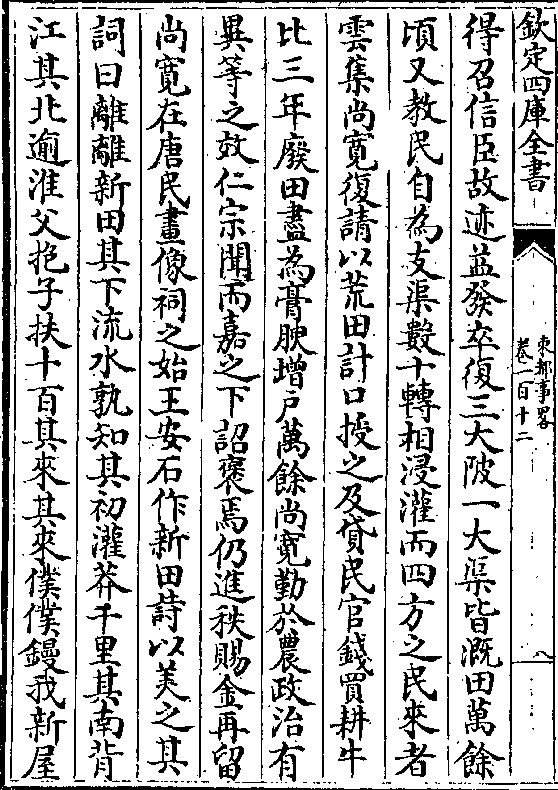 欽定四庫全書
東都事畧
卷一百十二
八
得召信臣故迹益發卒復三大陂一大渠皆溉田萬餘
頃又教民自為支渠數十轉相浸灌而四方之民來者
雲集尚寛復請以荒田計口授之及貸民官錢買耕牛
比三年廢田盡為膏腴增戸萬餘尚寛勤於農政治有
異等之效仁宗聞而嘉之下詔褒焉仍進秩賜金再留
尚寛在唐民畫像祠之始王安石作新田詩以美之其
詞曰離離新田其下流水孰知其初灌莽千里其南背
江其北逾淮父抱子扶十百其來其來僕僕鏝我新屋